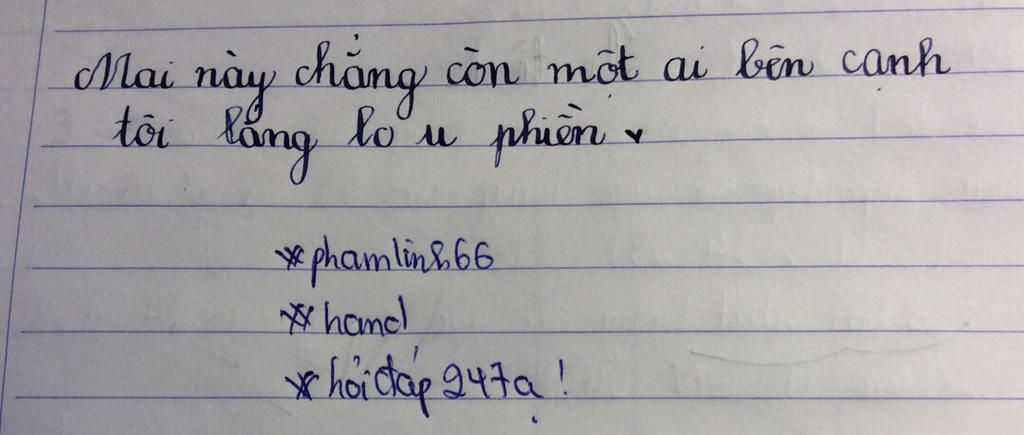 Mai này chẳng còn một ai bên cạnh
tôi lắng lo u phiền
*phamlinh66
*hand
*hỏi đáp 247ạ!